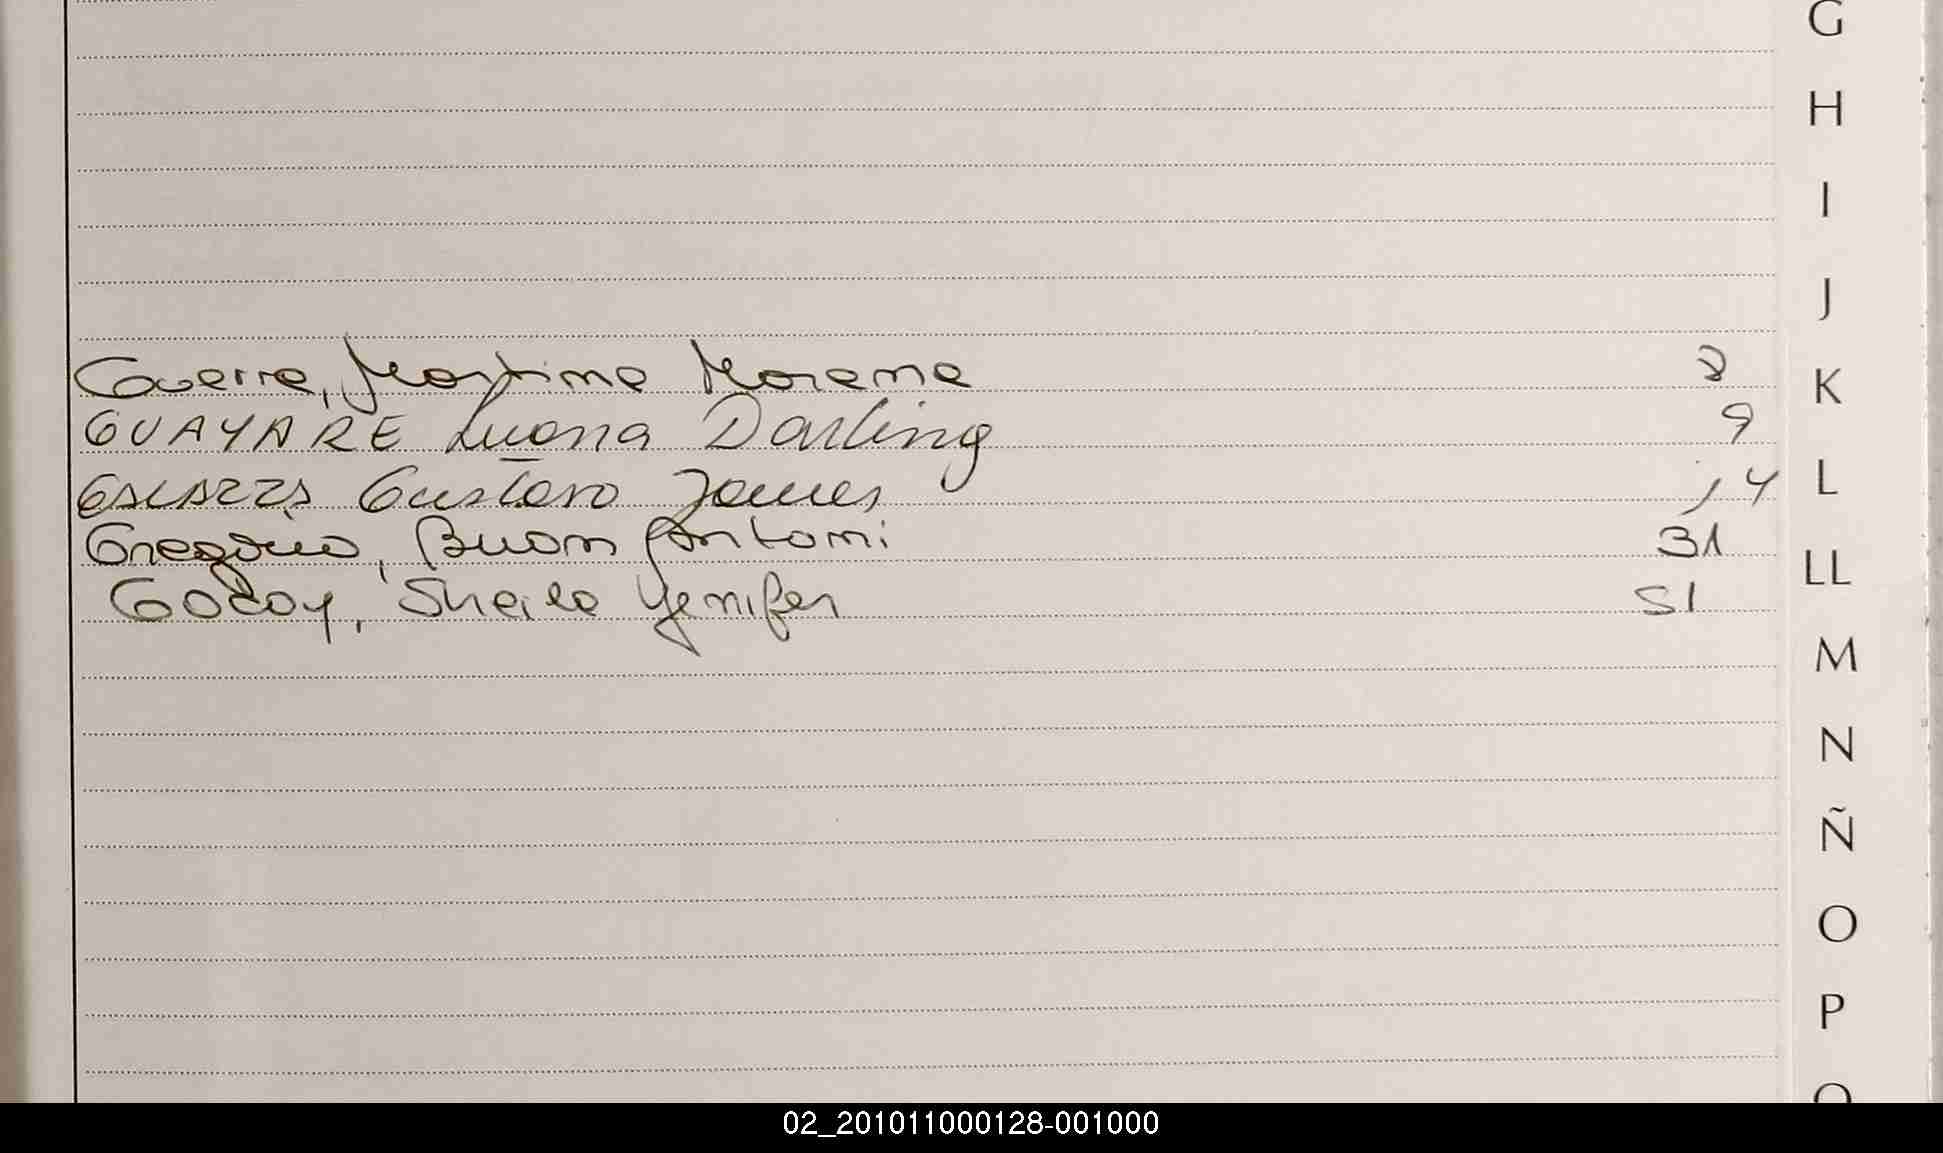 G
H
I
J
Guerra, Martina Morena 8
K
GUAYARE Luana Darling 9
GALARZA Gustavo James 14
L
Gregorio, Buon Antoni 31
LL
Godoy, Sheila Yenifer 51
M
N
Ñ
O
P
Q
02_201011000128-001000